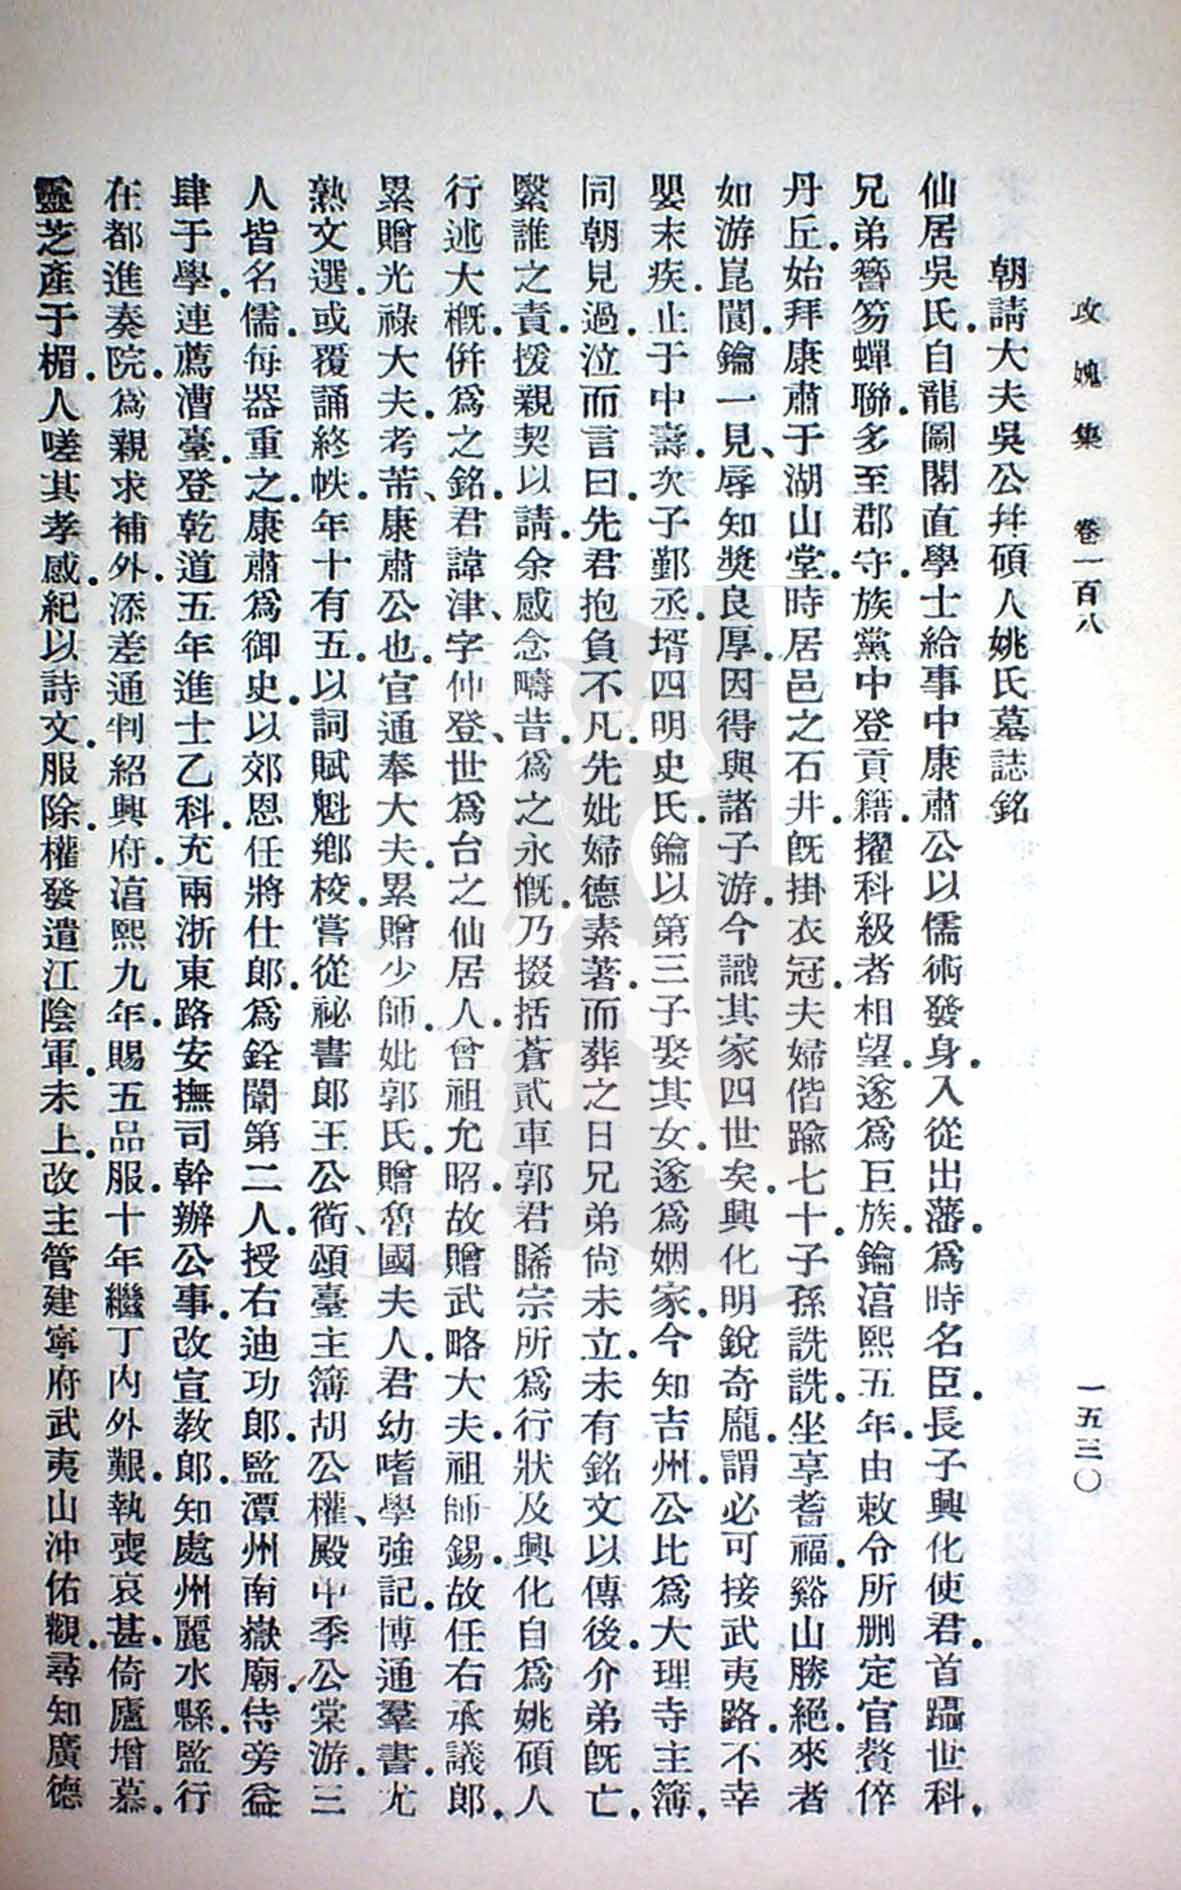 攻媿集　卷一百八　一五三〇
朝請大夫吳公幷碩人姚氏墓誌銘
仙居吳氏自龍圖閣直學士給事中康肅公以儒術發身入從出藩爲時名臣長子興化使君首躡世科
兄弟簪笏蟬聯多至郡守族黨中登貢籍擢科級者相望遂爲巨族鑰淳熙五年由敕令所刪定官贅倅
丹丘始拜康肅于湖山堂時居邑之石井旣掛衣冠夫婦偕踰七十子孫詵詵坐享耆福谿山勝絕來者
如游崑閬鑰一見辱知獎良厚因得與諸子游今識其家四世矣興化明銳奇龐謂必可接武夷路不幸
嬰末疾止于中壽次子鄞丞壻四明史氏鑰以第三子娶其女遂爲姻家今知吉州公比爲大理寺主簿
同朝見過泣而言曰先君抱負不凡先妣婦德素著而葬之日兄弟尙未立未有銘文以傳後介弟旣亡
繫誰之責援親契以請余感念疇昔爲之永慨乃掇括蒼貳車郭君晞宗所爲行狀及興化自爲姚碩人
行述大槪併爲之銘君諱津字仲登世爲台之仙居人曾祖允昭故贈武略大夫祖師錫故任右承議郎
累贈光祿大夫考芾康肅公也官通奉大夫累贈少師妣郭氏贈魯國夫人君幼嗜學強記博通羣書尤
熟文選或覆誦終帙年十有五以詞賦魁鄕校嘗從祕書郎王公衜頌臺主簿胡公權殿中季公棠游三
人皆名儒每器重之康肅爲御史以郊恩任將仕郎爲銓闈第二人授右迪功郎監潭州南嶽廟侍旁益
肆于學連薦漕臺登乾道五年進士乙科充兩浙東路安撫司幹辦公事改宣教郎知處州麗水縣監行
在都進奏院爲親求補外添差通判紹興府淳熙九年賜五品服十年繼丁內外艱執喪哀甚倚廬增慕
靈芝產于楣人嗟其孝感紀以詩文服除權發遣江陰軍未上改主管建寧府武夷山沖佑觀尋知廣德